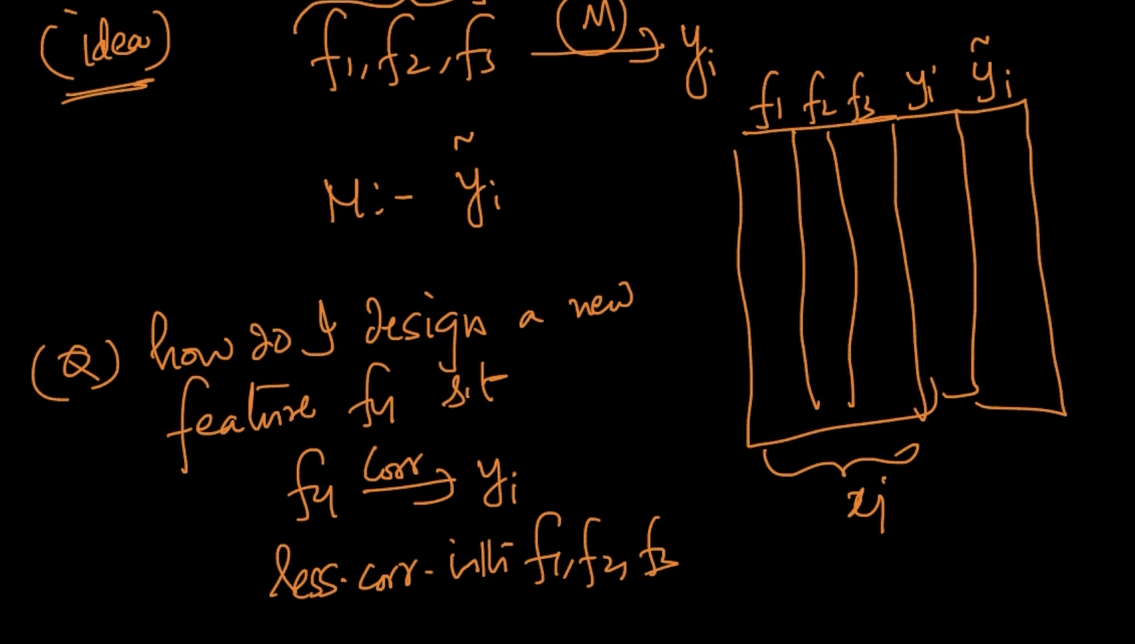 (idea) f1, f2, f3 M → yi
M:- ỹi
(Q) how do I design a new
feature f4 s.t
f4 corr → yi
less. corr. with f1, f2, f3
f1 f2 f3 yi ỹi
xi